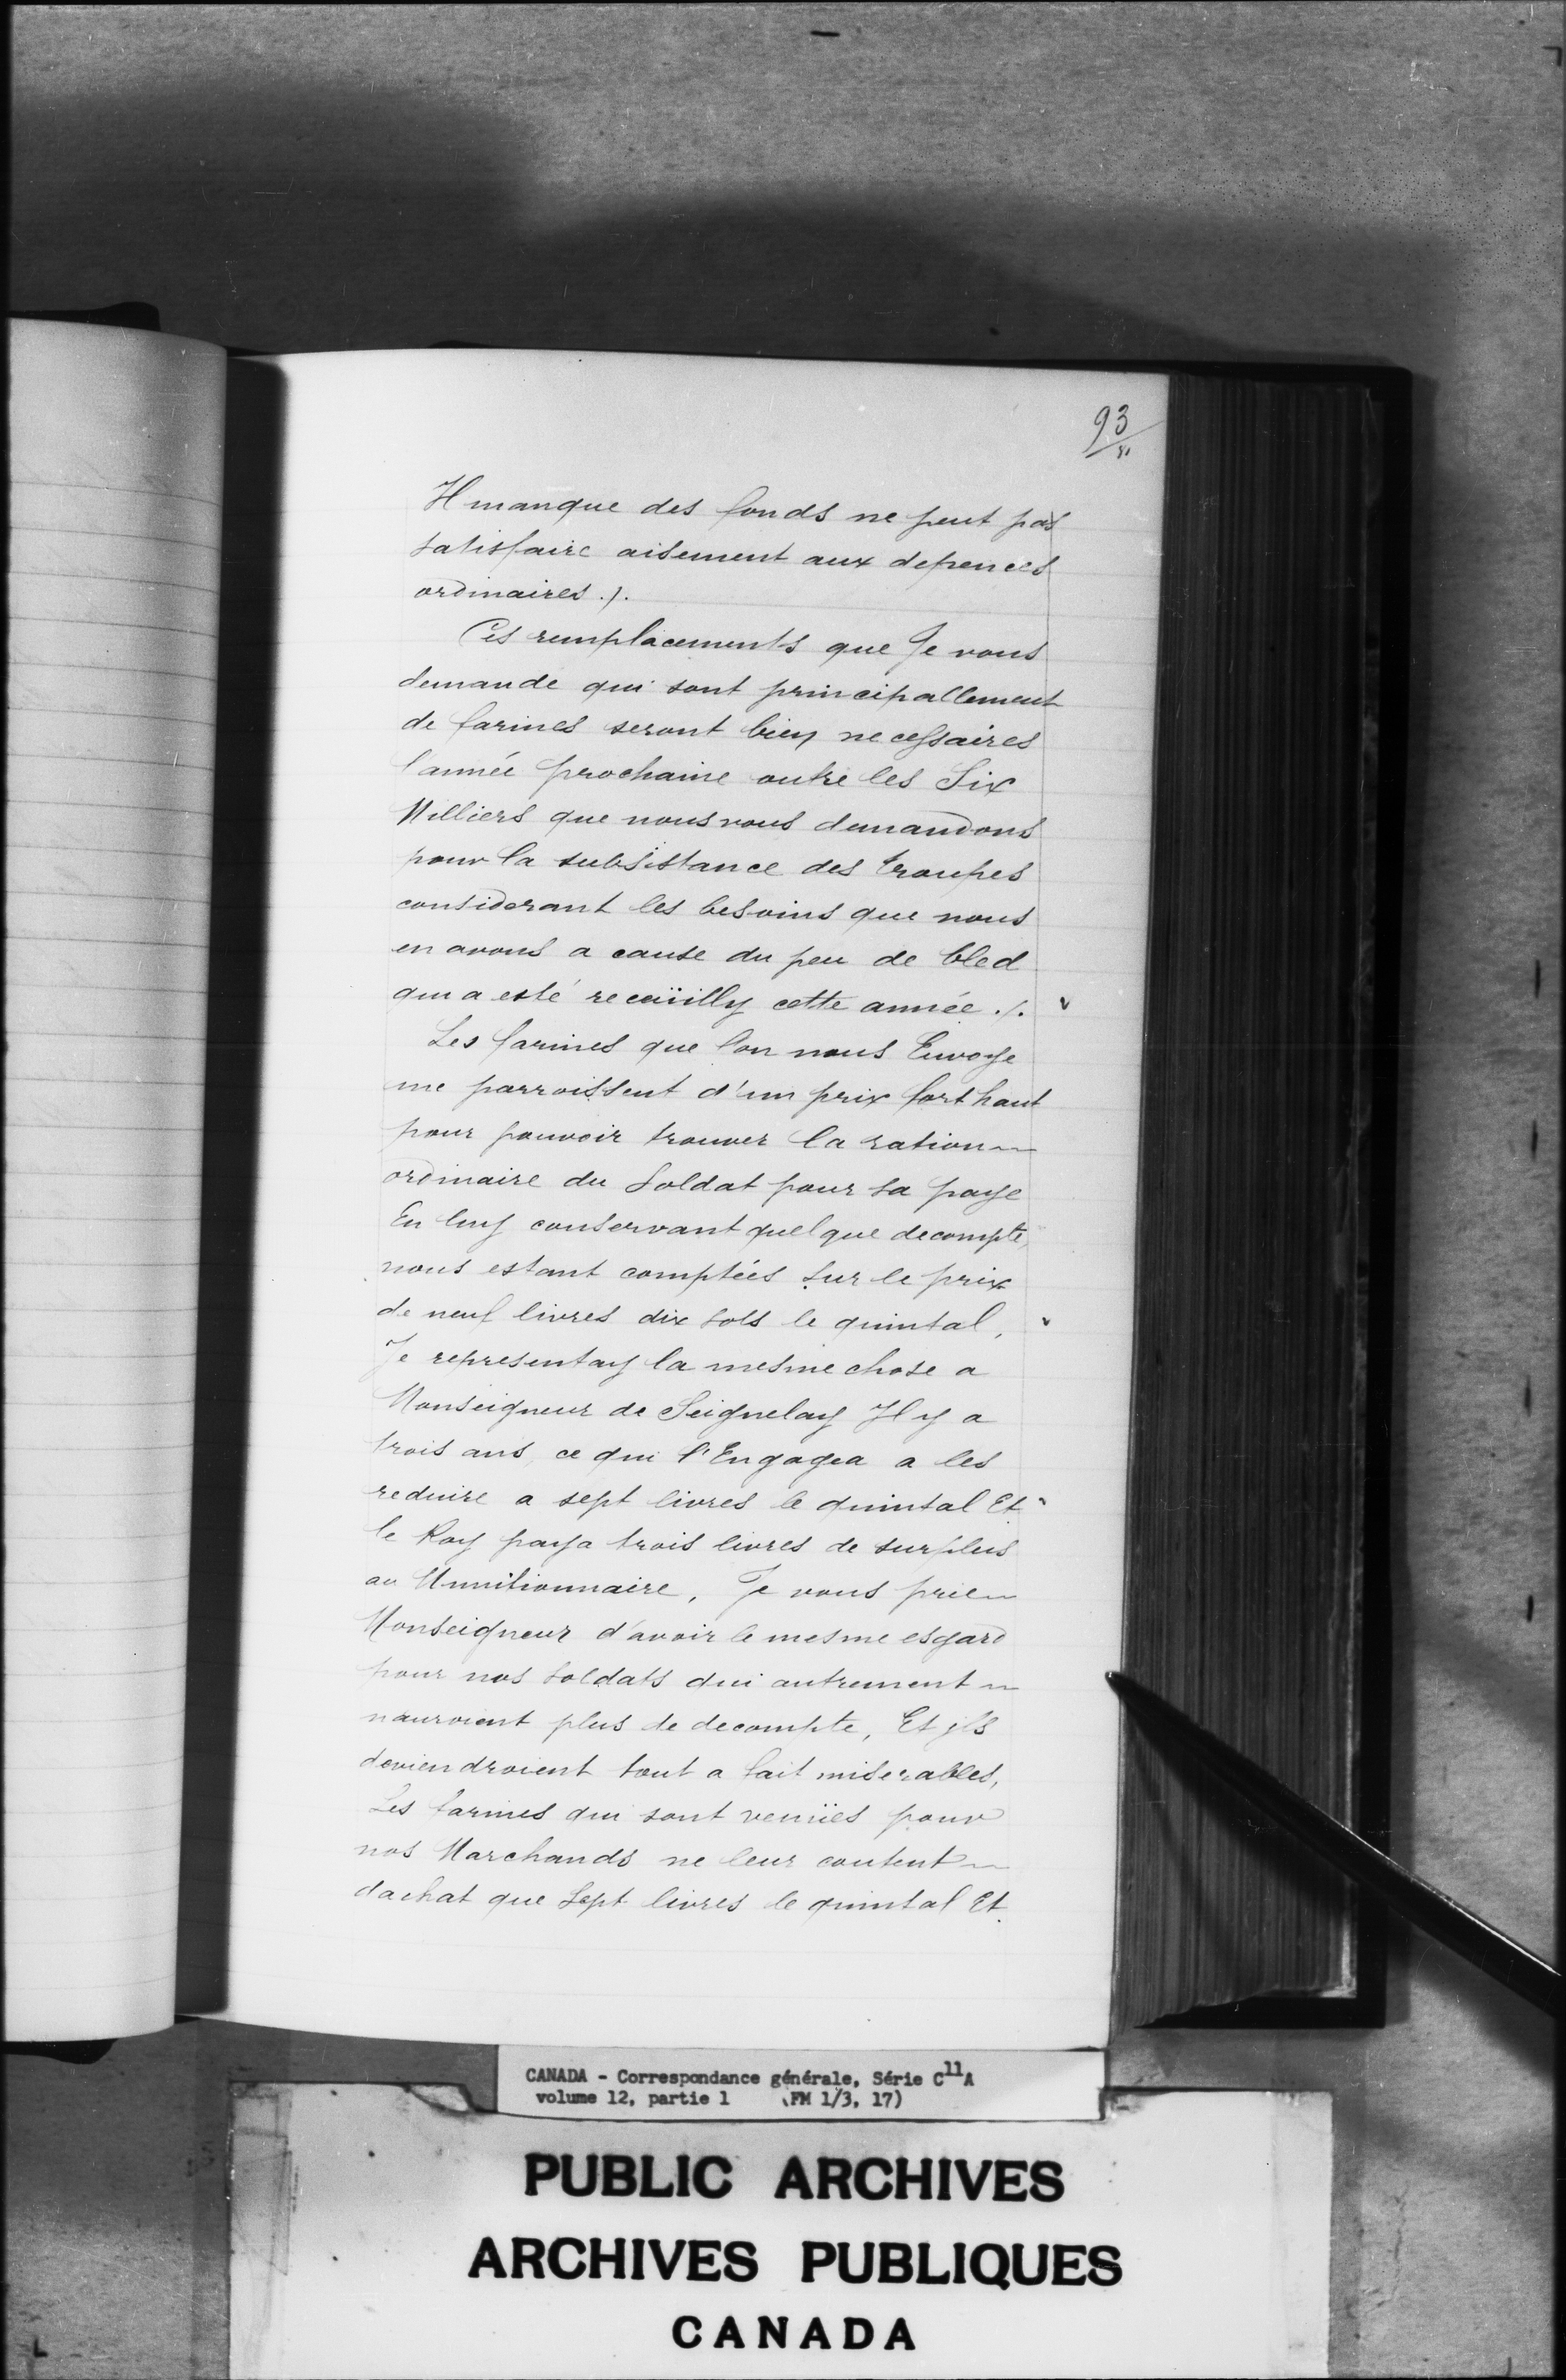 93
Il manque des fonds ne peut pas
satisfaire aisement aux depences
ordinaires ./.
Ces remplacements que Je vous
demande qui sont principallement
de farines seront bien necessaires
l'année prochaine outre les Six
Milliers que nous vous demandons
pour la subsistance des troupes
considerant les besoins que nous
en avons a cause du peu de bled
qui a esté recuëilly cette année ./.
Les farines que l'on nous Envoye
me parroissent d'un prix fort haut
pour pouvoir trouver la ration
ordinaire du Soldat pour sa paye
En luy conservant quelque decompte,
nous estant comptées sur le prix
de neuf livres dix sols le quintal,
Je representay la mesme chose a
Monseigneur de Seignelay Il y a
trois ans, ce qui l'Engagea a les
reduire a sept livres le quintal Et
le Roy paya trois livres de surplus
au Munitionnaire, Je vous prie
Monseigneur d'avoir le mesme esgard
pour nos soldats qui autrement
nauroient plus de decompte, Et jls
deviendroient tout a fait miserables,
Les farines qui sont venuës pour
nos Marchands ne leur coutent
dachat que Sept livres le quintal Et
CANADA - Correspondance générale, Série C11A
volume 12, partie 1 (FM 1/3, 17)
PUBLIC ARCHIVES
ARCHIVES PUBLIQUES
CANADA